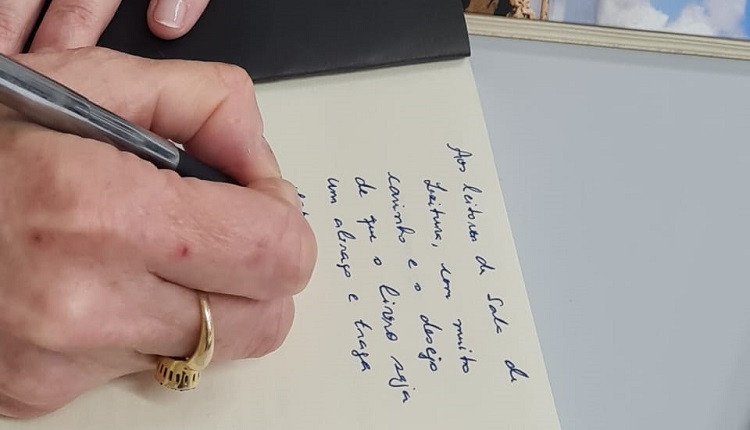 Aos leitores da Sala de
Leitura, com muito
carinho e o desejo
de que o livro seja
um abraço e traga